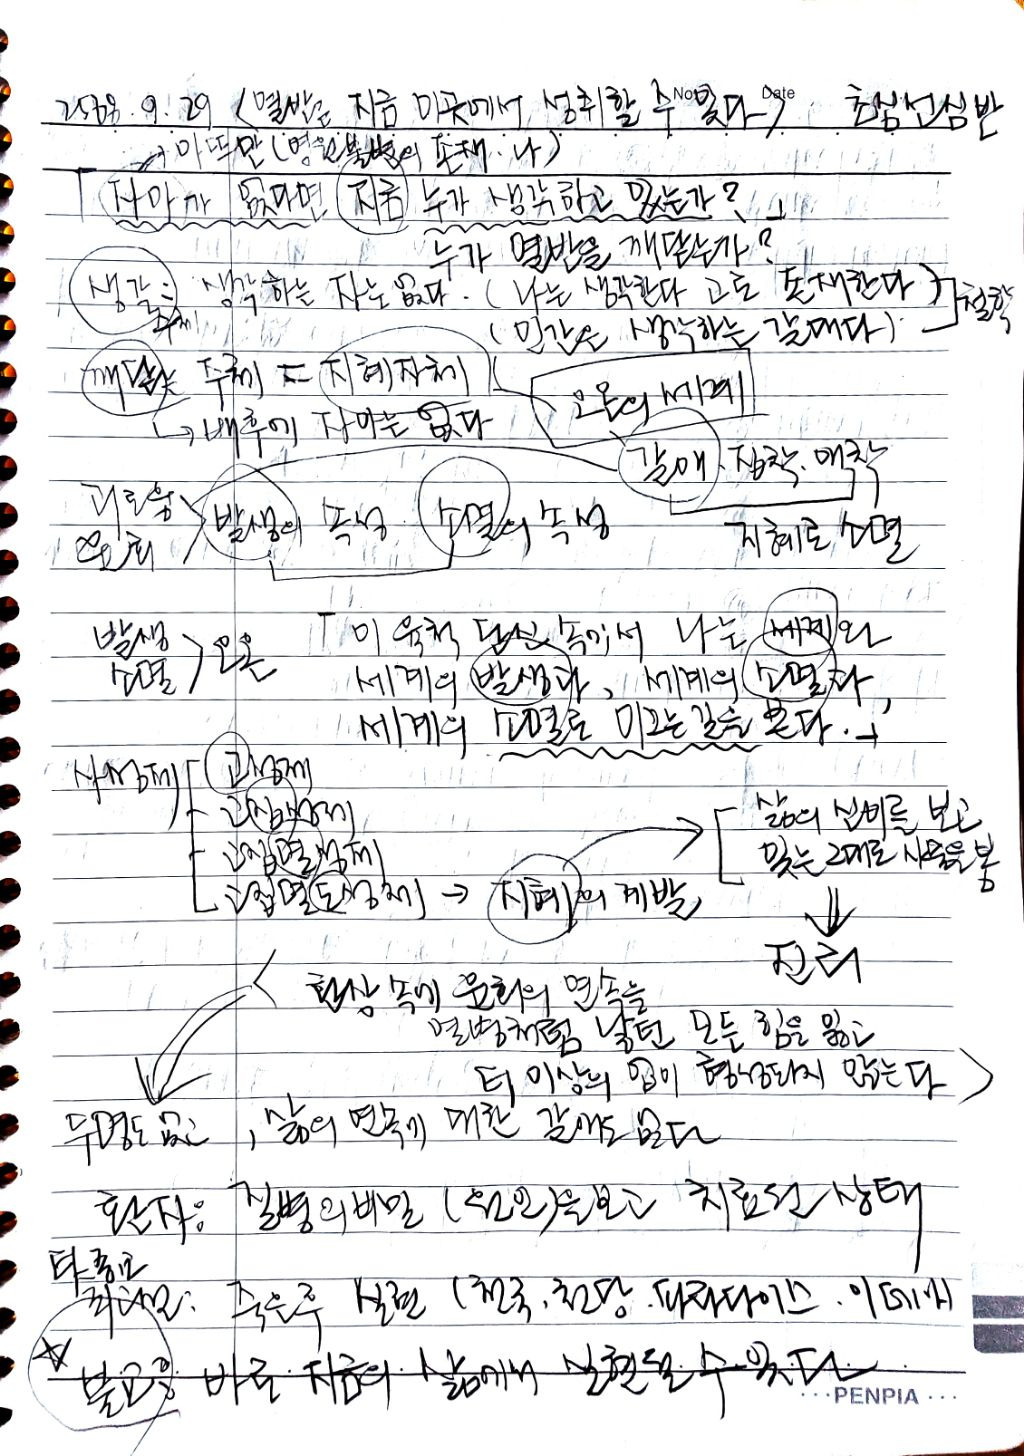 2568. 9. 29 (열반은 지금 이곳에서 성취할 수 있다) 초심선심반
No Date
→ 아뜨만 (영원불변의 존재·나)
「자아가 없다면 지금 누가 생각하고 있는가?」
누가 열반을 깨닫는가?
생각: 생각하는 자는 없다. (나는 생각한다 고로 존재한다) 철학
주체 (인간은 생각하는 갈대다)
깨닫는 주체 = 지혜자체
오온의 세계
↳ 배후에 자아는 없다
갈애·집착·애착
괴로움 발생의 속성 소멸의 속성
윤회 지혜로 소멸
발생 「이 육척 단신 속에서 나는 세계와
소멸 > 오온 세계의 발생과, 세계의 소멸과,
세계의 소멸로 이끄는 길을 본다.」
사성제 고성제
고집성제
고집멸성제
고집멸도성제 → 지혜의 계발
삶의 신비를 보고
있는 그대로 사물을 봄
진리
현상 속에 윤회의 연속을
열병처럼 낳던 모든 힘을 잃고
더 이상의 업이 형성되지 않는다
무명도 없고, 삶의 연속에 대한 갈애도 없다
환자: 질병의 비밀 (원인)을 보고 치료된 상태
타종교
죽은후 실현 (천국·천당·파라다이스·이데아)
☆ 불교: 바로 지금의 삶에서 실현될 수 있다
PENPIA